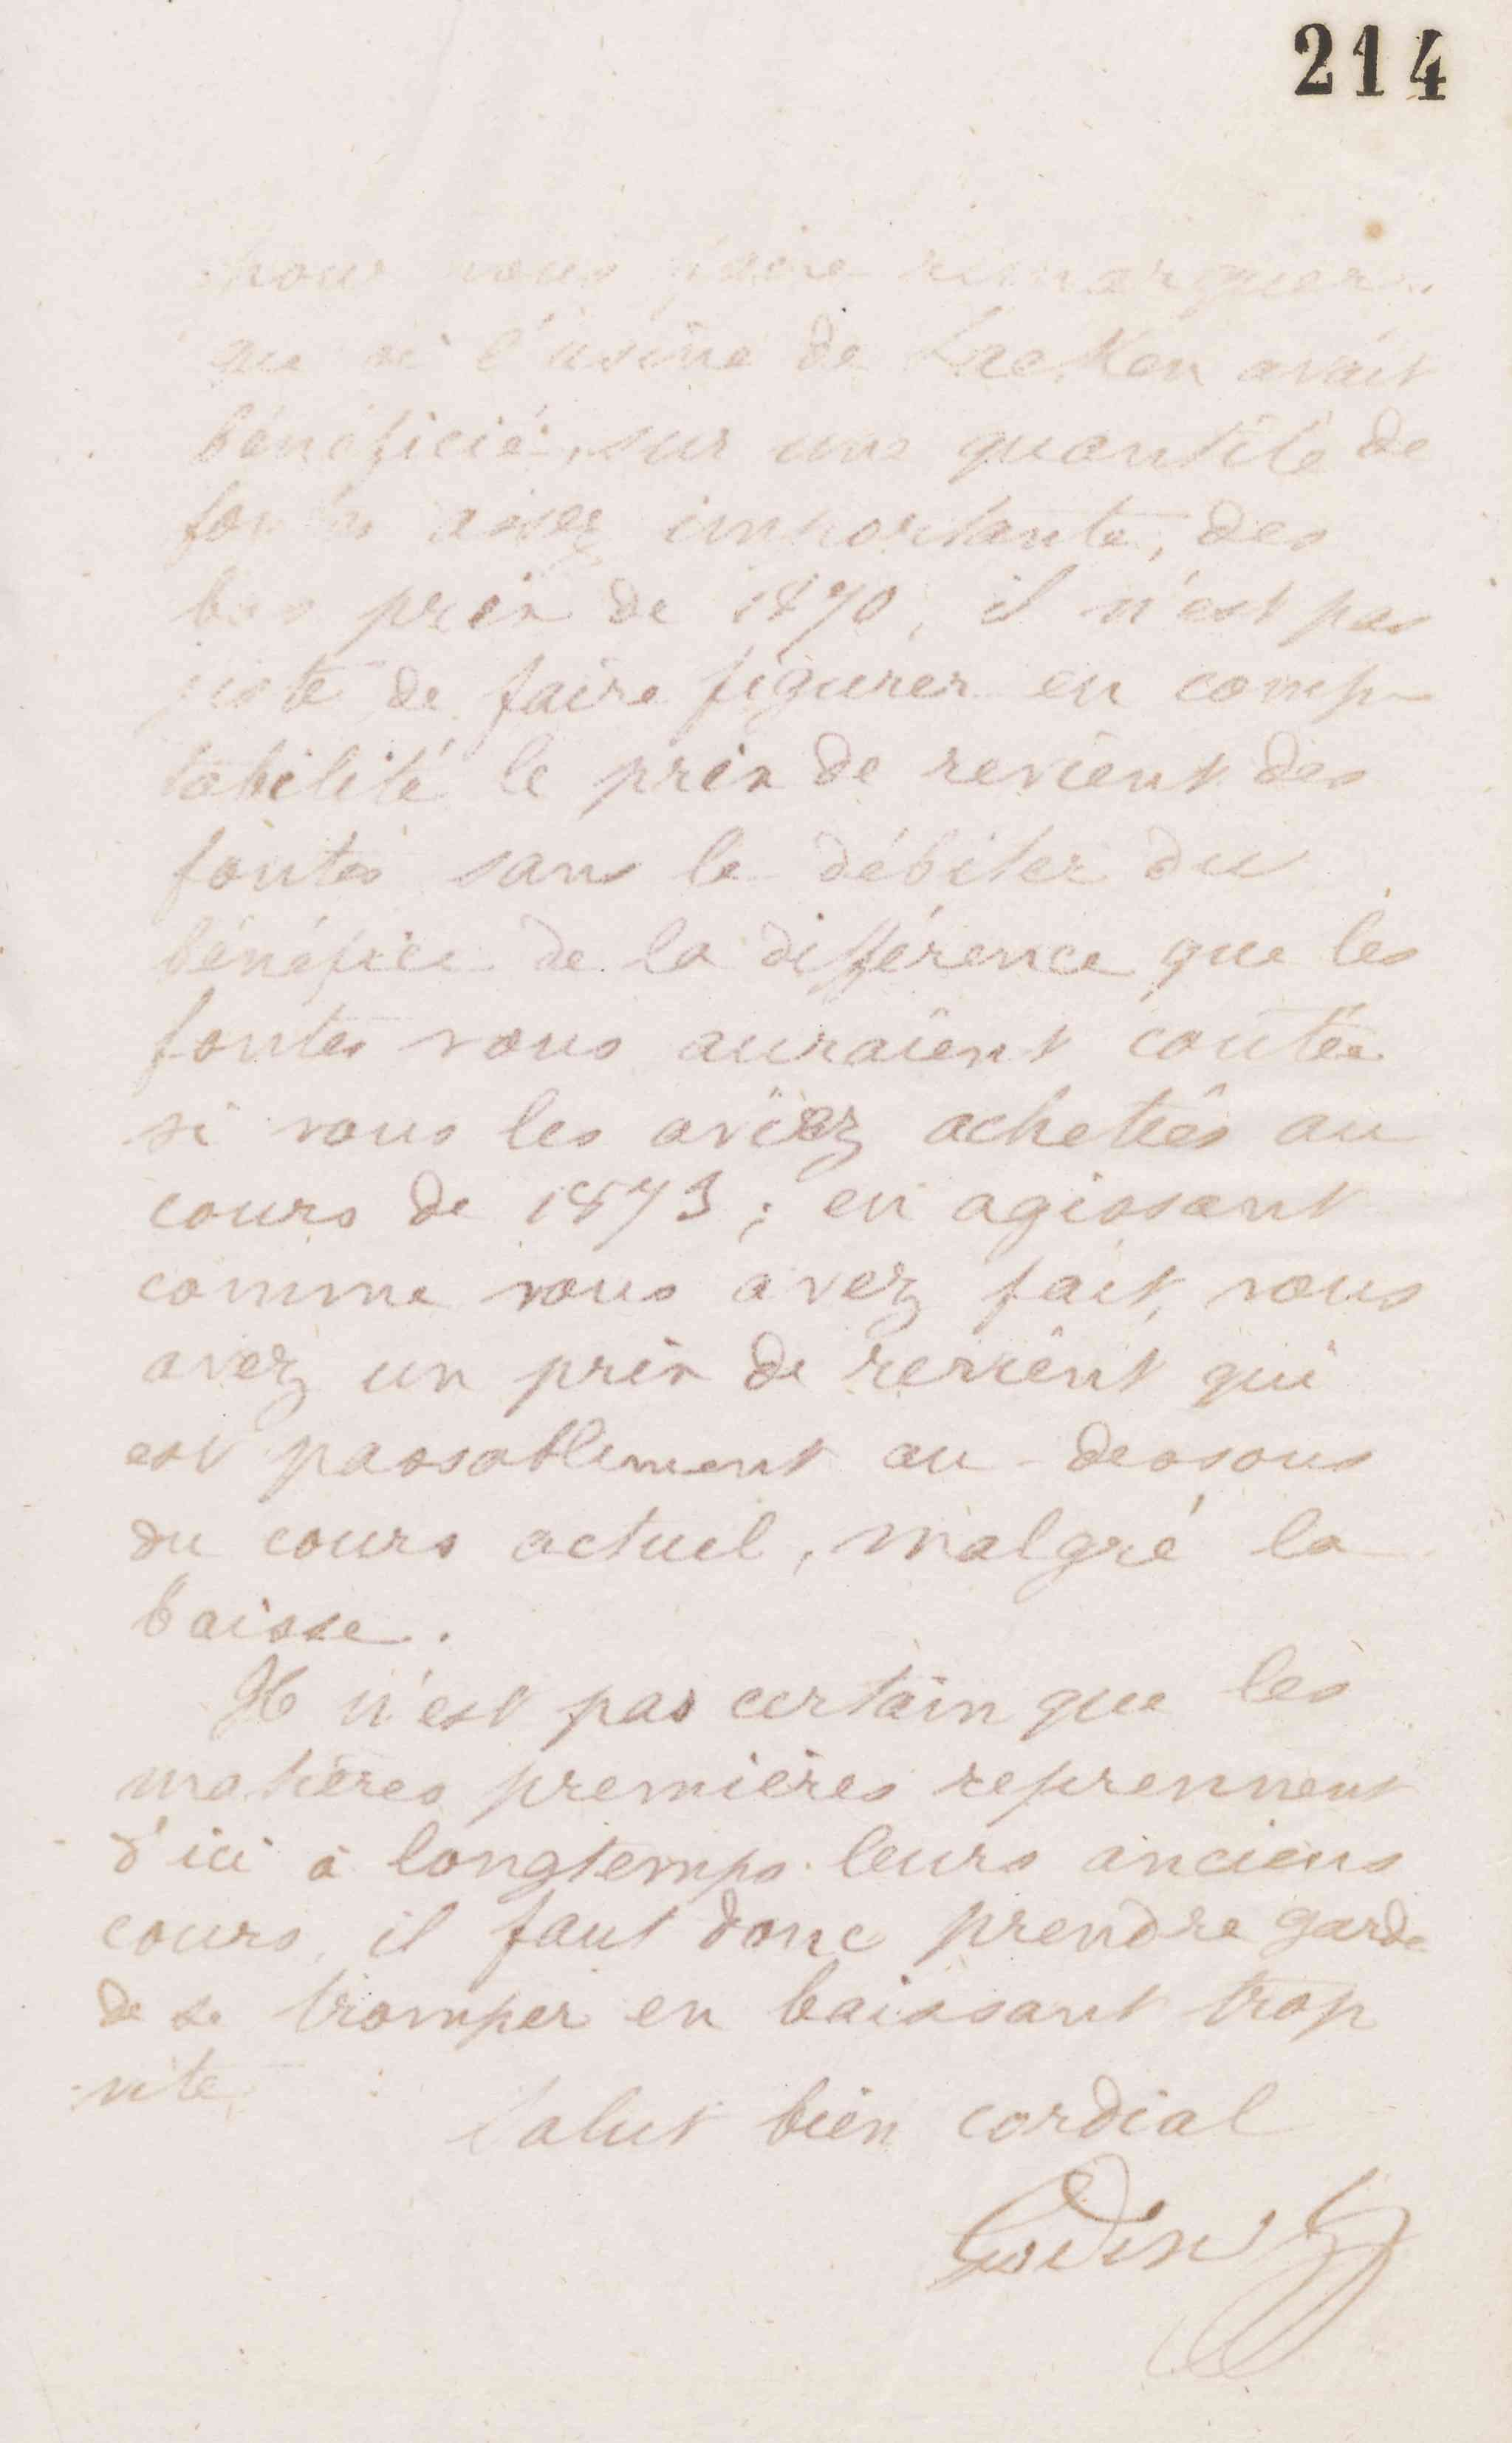 214
pour vous faire remarquer
que si l'usine de Laeken avait
bénéficié, sur une quantité de
fontes assez importante, des
bas prix de 1870, il n'est pas
juste de faire figurer en comp-
tabilité le prix de revient des
fontes sans le débiter du
bénéfice de la différence que les
fontes vous auraient coûtée
si vous les aviez achetées au
cours de 1873 ; en agissant
comme vous avez fait, vous
avez un prix de revient qui
est passablement au-dessous
du cours actuel, malgré la
baisse.
Il n'est pas certain que les
matières premières reprennent
d'ici à longtemps leurs anciens
cours, il faut donc prendre garde
de se tromper en baissant trop
vite.
Salut bien cordial
Godin